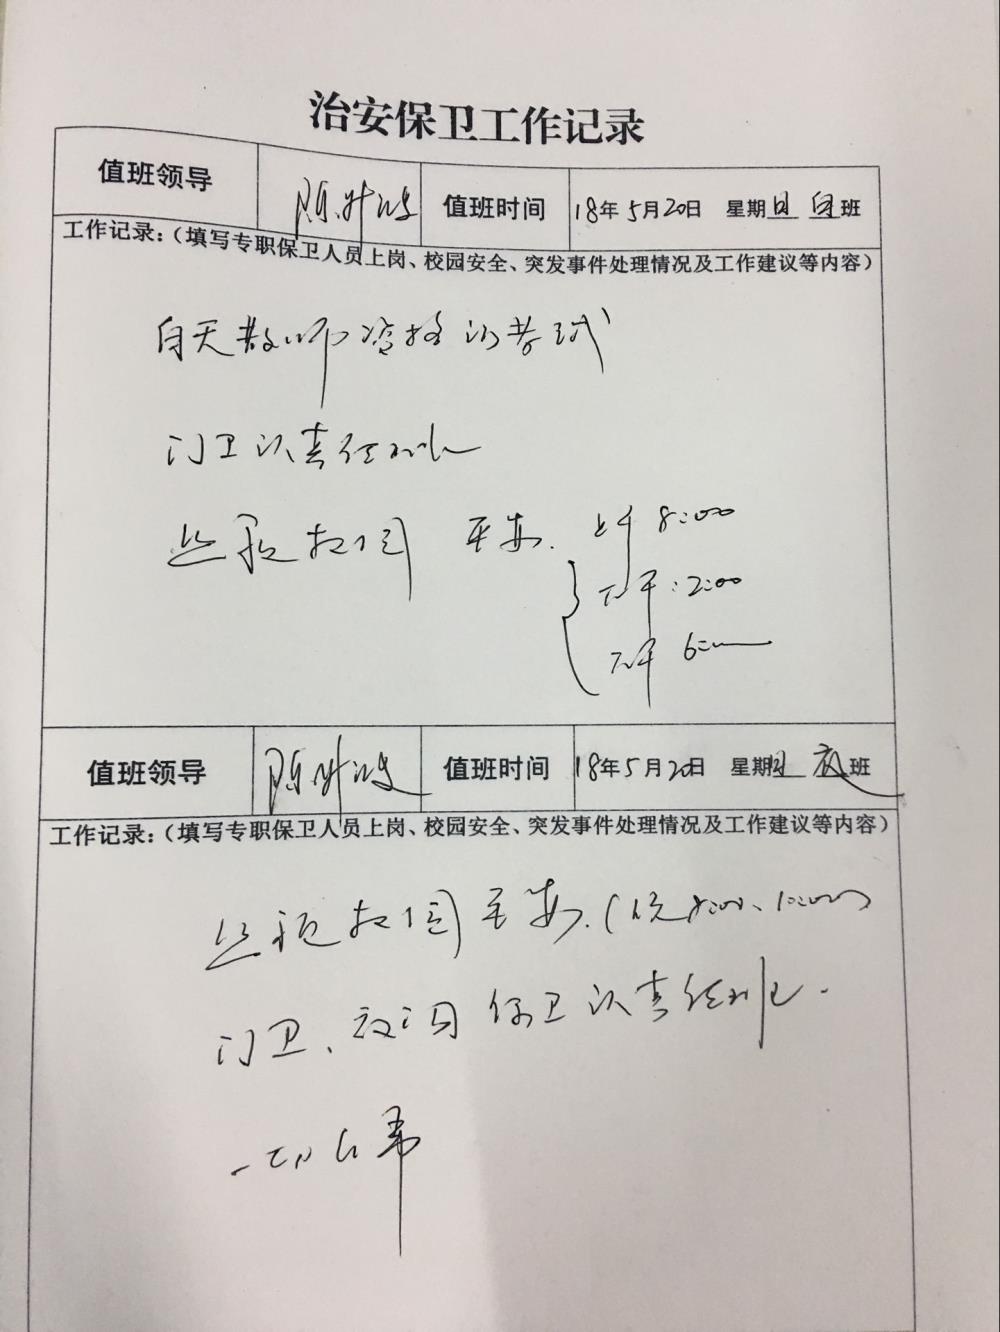 治安保卫工作记录
值班领导 陈 值班时间 18年5月20日 星期日 白班
工作记录:(填写专职保卫人员上岗、校园安全、突发事件处理情况及工作建议等内容)
白天教师资格的考试
门卫认责值班
巡视校园 平安. 上午 8:00
下午:2:00
下午 6:00
值班领导 陈 值班时间 18年5月20日 星期日 夜班
工作记录:(填写专职保卫人员上岗、校园安全、突发事件处理情况及工作建议等内容)
巡视校园平安.(晚8:00、10:00)
门卫、夜间保卫认责值班.
一切正常